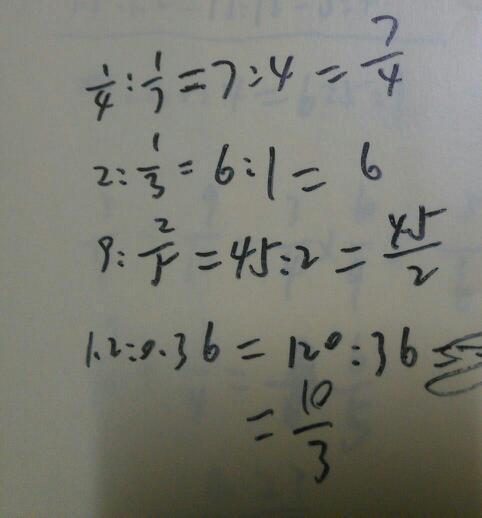 1/4 : 1/7 = 7 : 4 = 7/4
2 : 1/3 = 6 : 1 = 6
9 : 2/5 = 45 : 2 = 45/2
1.2 : 0.36 = 120 : 36
= 10/3